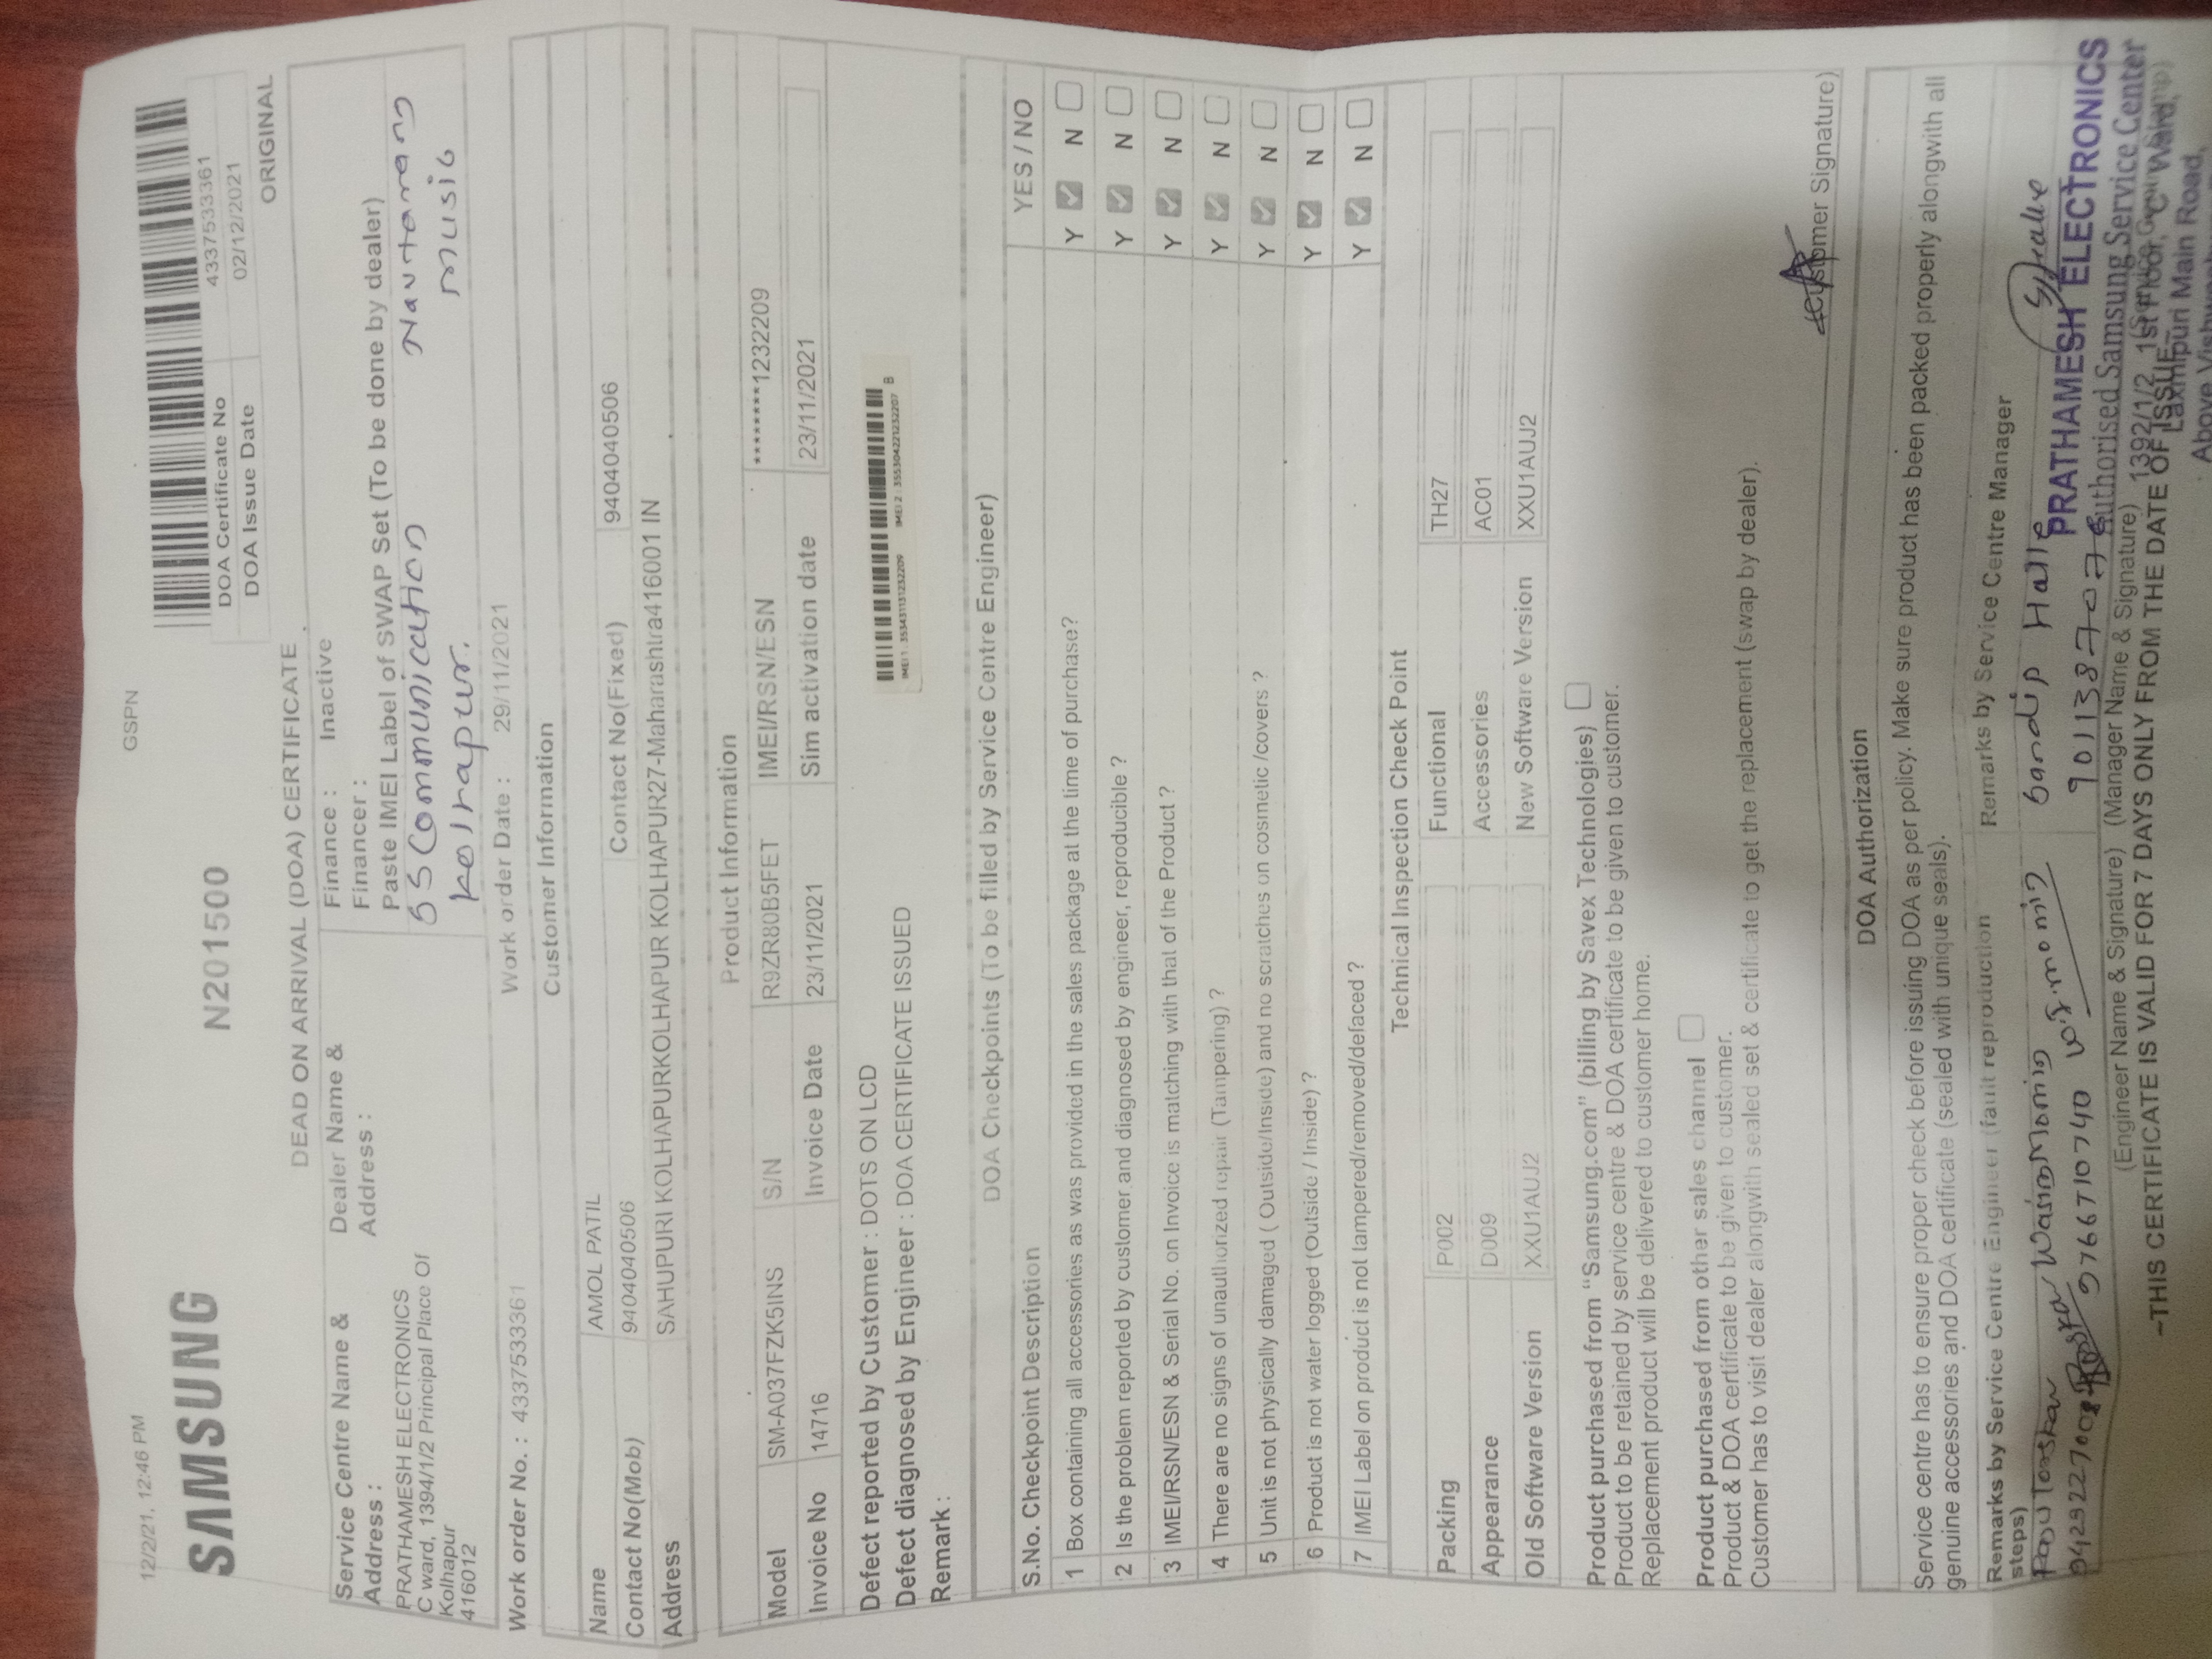 12/2/21, 12:46 PM GSPN
SAMSUNG N201500
DOA Certificate No 4337533361
DOA Issue Date 02/12/2021
ORIGINAL
DEAD ON ARRIVAL (DOA) CERTIFICATE
Service Centre Name & Address :
PRATHAMESH ELECTRONICS
C ward, 1394/1/2 Principal Place Of
Kolhapur
416012
Dealer Name & Address :
Finance : Inactive
Financer :
Paste IMEI Label of SWAP Set (To be done by dealer)
S S Communication Navtarang
Kolhapur. music
Work order No. : 4337533361 Work order Date : 29/11/2021
Customer Information
Name AMOL PATIL
Contact No(Mob) 9404040506 Contact No(Fixed) 9404040506
Address SAHUPURI KOLHAPURKOLHAPUR KOLHAPUR KOLHAPUR27-Maharashtra416001 IN
Product Information
Model SM-A037FZK5INS S/N R9ZR80B5FET IMEI/RSN/ESN ********1232209
Invoice No 14716 Invoice Date 23/11/2021 Sim activation date 23/11/2021
Defect reported by Customer : DOTS ON LCD
Defect diagnosed by Engineer : DOA CERTIFICATE ISSUED
Remark :
IMEI 1 : 353431131232209 IMEI 2 : 355304221232207 B
DOA Checkpoints (To be filled by Service Centre Engineer)
S.No. Checkpoint Description YES / NO
1 Box containing all accessories as was provided in the sales package at the time of purchase? Y N
2 Is the problem reported by customer and diagnosed by engineer, reproducible ? Y N
3 IMEI/RSN/ESN & Serial No. on Invoice is matching with that of the Product ? Y N
4 There are no signs of unauthorized repair (Tampering) ? Y N
5 Unit is not physically damaged ( Outside/Inside) and no scratches on cosmetic /covers ? Y N
6 Product is not water logged (Outside / Inside) ? Y N
7 IMEI Label on product is not tampered/removed/defaced ? Y N
Technical Inspection Check Point
Packing P002 Functional TH27
Appearance D009 Accessories AC01
Old Software Version XXU1AUJ2 New Software Version XXU1AUJ2
Product purchased from "Samsung.com" (billing by Savex Technologies)
Product to be retained by service centre & DOA certificate to be given to customer.
Replacement product will be delivered to customer home.
Product purchased from other sales channel
Product & DOA certificate to be given to customer.
Customer has to visit dealer alongwith sealed set & certificate to get the replacement (swap by dealer).
(Customer Signature)
DOA Authorization
Service centre has to ensure proper check before issuing DOA as per policy. Make sure product has been packed properly alongwith all
genuine accessories and DOA certificate (sealed with unique seals).
Remarks by Service Centre Engineer (fault reproduction steps)
Remarks by Service Centre Manager
Wasim Momin w.j.momin
9766710740
Sandip Halle
PRATHAMESH ELECTRONICS
Authorised Samsung Service Center
1392/1/2, 1st Floor, 'C' Ward,
Laxmipuri Main Road,
(Engineer Name & Signature) (Manager Name & Signature)
~THIS CERTIFICATE IS VALID FOR 7 DAYS ONLY FROM THE DATE OF ISSUE